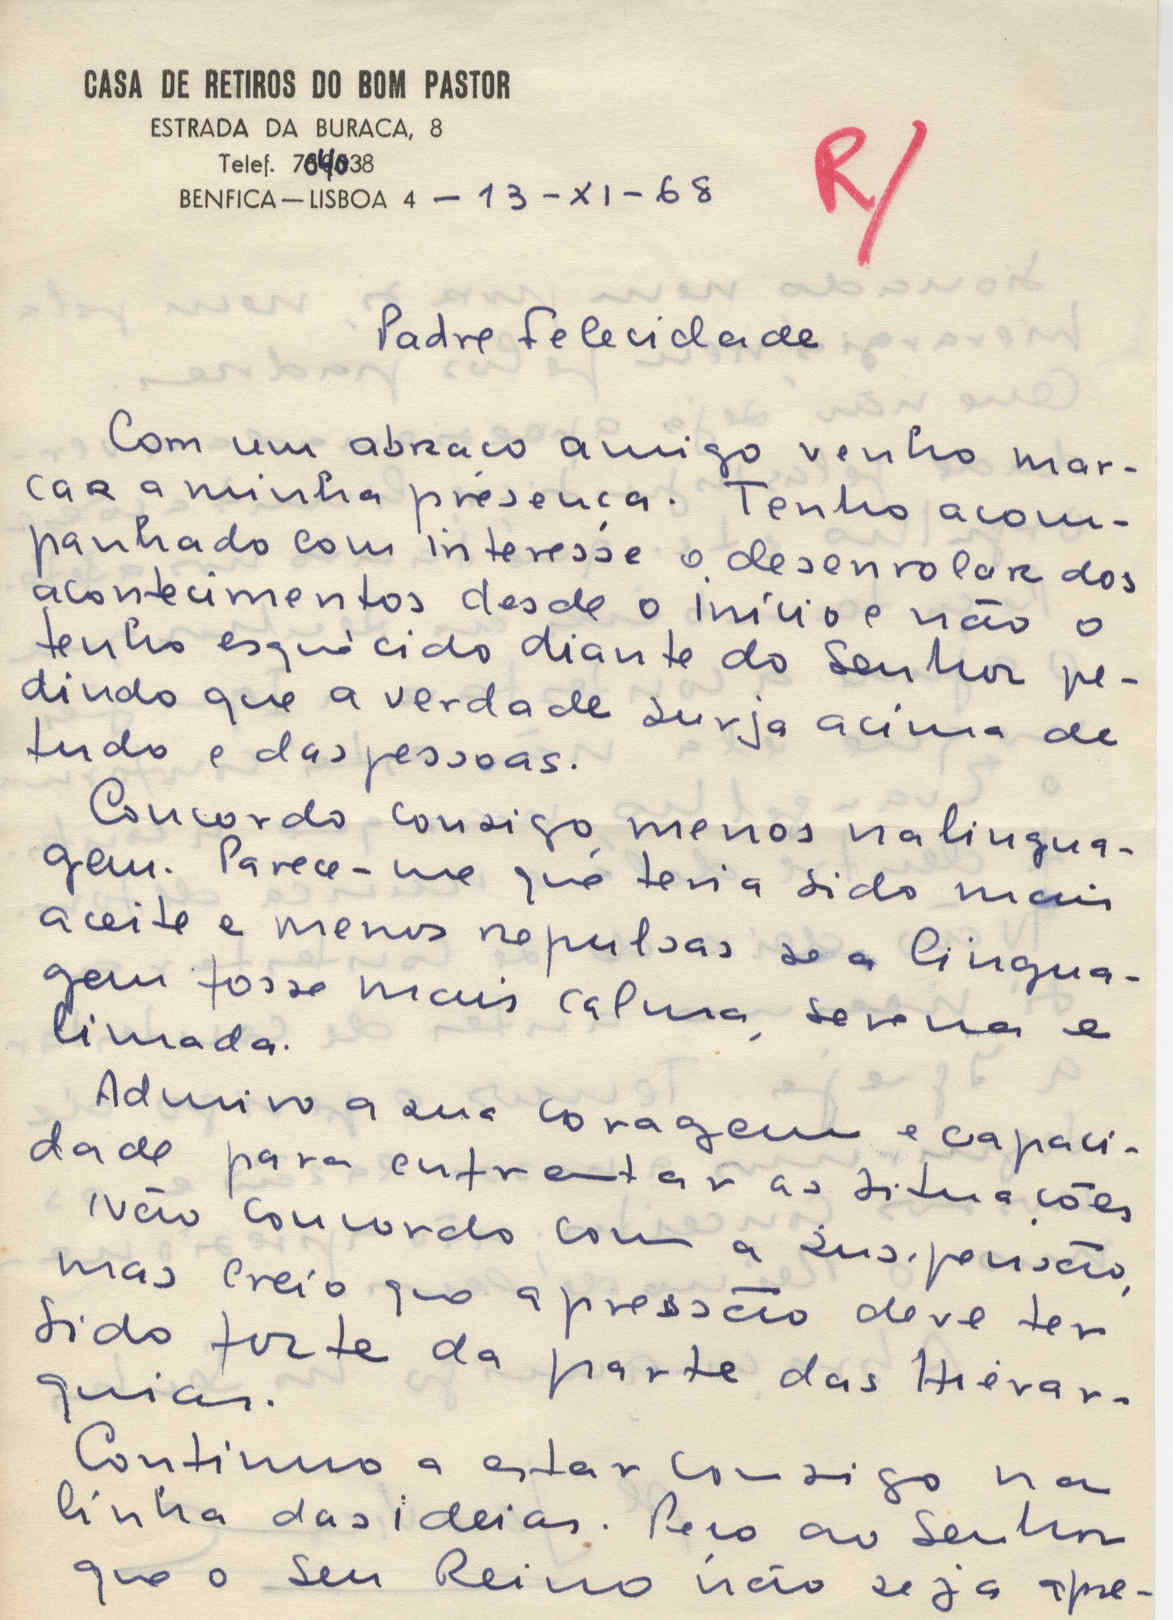 CASA DE RETIROS DO BOM PASTOR
ESTRADA DA BURACA, 8
Telef. 704038
BENFICA — LISBOA 4 – 13-XI-68
R/
Padre Felecidade
Com um abraço amigo venho mar-
car a minha presença. Tenho acom-
panhado com interesse o desenrolar dos
acontecimentos desde o início e não o
tenho esquècido diante do Senhor pe-
dindo que a verdade surja acima de
tudo e das pessoas.
Concordo consigo, menos na lingua-
gem. Parece-me que teria sido mais
aceite e menos repulsas se a lingua-
gem fosse mais calma, serena e
limada.
Admiro a sua coragem e capaci-
dade para enfrentar as situações
Não concordo com a suspensão,
mas creio que a pressão deve ter
sido forte da parte das Hierar-
quias.
Continuo a estar consigo na
linha das ideias. Peço ao Senhor
que o seu Reino não seja apre-